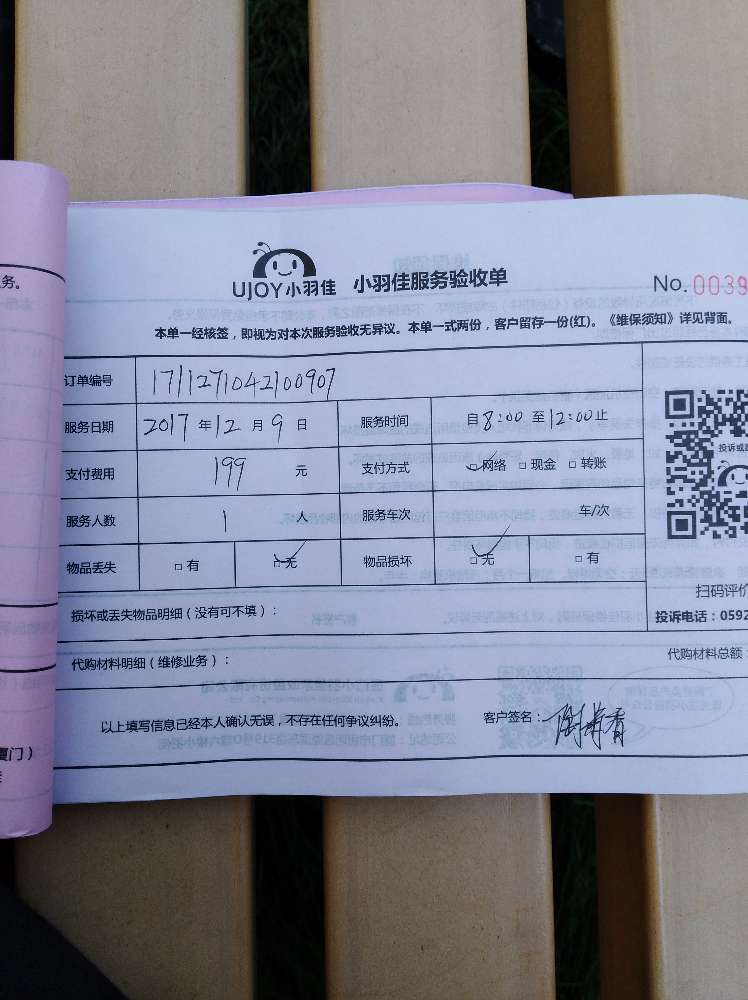 务。
UJOY小羽佳 小羽佳服务验收单
No.0039
本单一经核签，即视为对本次服务验收无异议。本单一式两份，客户留存一份(红)。《维保须知》详见背面。
订单编号 1711271042100907
服务日期 2017年12月9日 服务时间 自8:00至12:00止
支付费用 199元 支付方式 ☑网络 □现金 □转账
服务人数 1 服务车次 车/次
物品丢失 □有 ☑无 物品损坏 ☑无 □有
投诉或
扫码评价
投诉电话：0592
损坏或丢失物品明细（没有可不填）：
代购材料明细（维修业务）： 代购材料总额：
以上填写信息已经本人确认无误，不存在任何争议纠纷。 客户签名：
厦门）